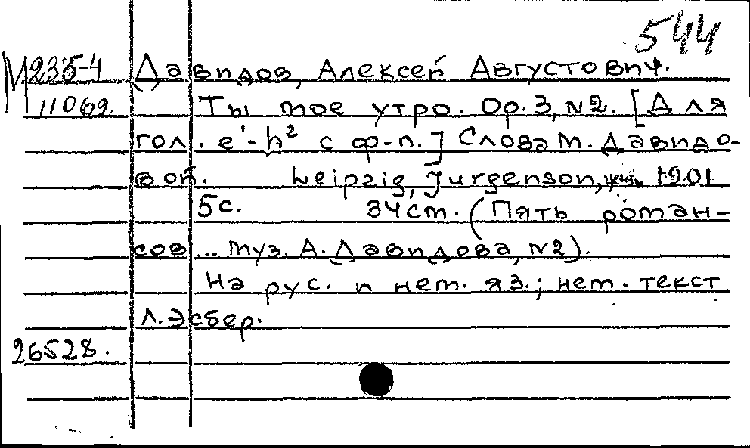 544
М235-4 Давидов, Алексей Августович.
11069. Ты мое утро. Op. 3, №2. [Для
гол. e¹-h² с ф-п.] Слова М. Давидо-
вой. Leipzig, Jurgenson, 1901
5с. 34ст. (Пять роман-
сов... муз. А. Давидова, №2).
На рус. и нем. яз.; нем. текст
Л. Эсбер.
26528.